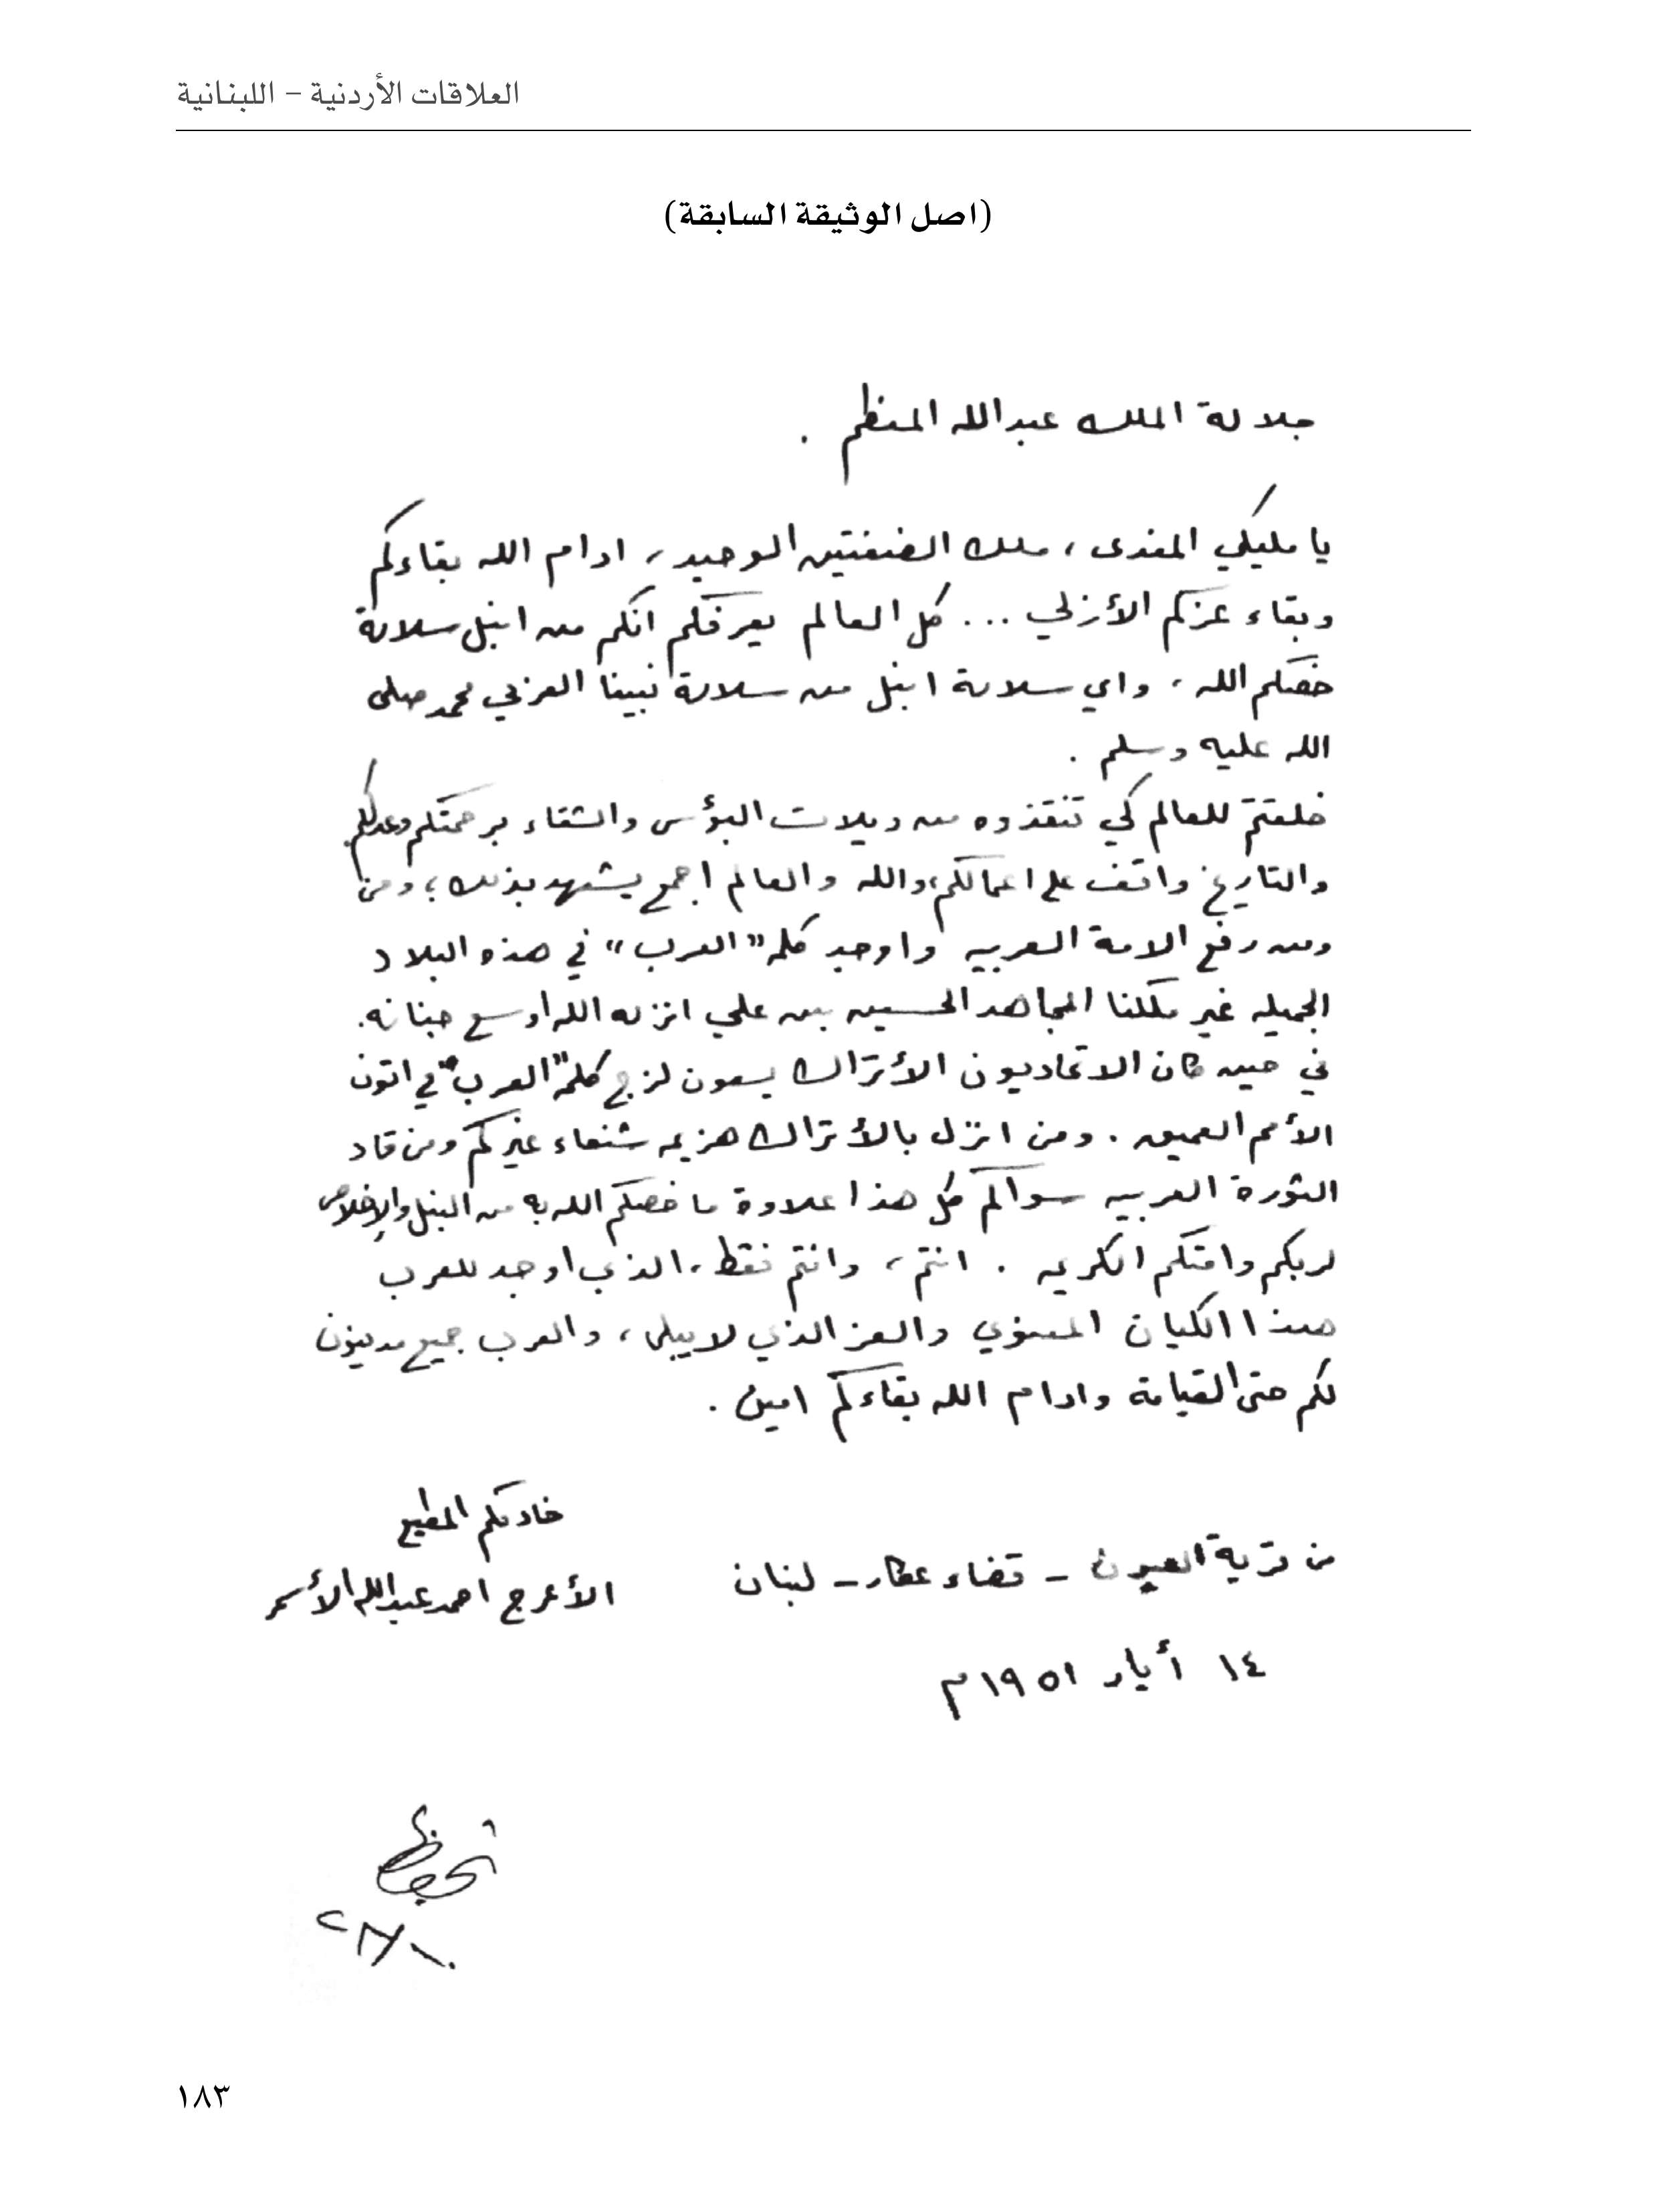 العلاقات الأردنية – اللبنانية
(اصل الوثيقة السابقة)
جلالة الملك عبدالله المعظم .
يا مليكي المفدى ، ملك الضفتين الوحيد ، ادام الله بقاءكم
وبقاء عزكم الأزلي ... كل العالم يعرفكم انكم من انبل سلالة
خصكم الله ، واي سلالة انبل من سلالة نبينا العربي محمد صلى
الله عليه وسلم .
خلقتم للعالم كي تنقذوه من ويلات البؤس والشقاء برحمتكم وعدلكم.
والتاريخ واقف على اعمالكم، والله والعالم اجمع يشهد بذلك ، ومن
ومن رفع الامة العربيه واوجد كلمة "العرب" في هذه البلاد
الجميله غير ملكنا المجاهد الحسين بن علي انزله الله اوسع جنانه.
في حين كان الاتحاديون الأتراك يسعون لزج كلمة "العرب" في اتون
الأمم العميق . ومن انزل بالأتراك هزيمه شنعاء غيركم ومن قاد
الثورة العربيه سواكم كل هذا علاوة ما خصكم الله به من النبل والإخلاص
لربكم وامتكم الكريمه . انتم ، وانتم فقط ، الذي اوجد للعرب
هذا الكيان المعنوي والعز الذي لا يبلى ، والعرب جميع مدينون
لكم حتى القيامة وادام الله بقاءكم امين .
خادمكم المطيع
من قرية العيون – قضاء عكار – لبنان
الأعرج احمد عبدالله الأسمر
١٤ أيار ١٩٥١م
تحفظ
١٨٣